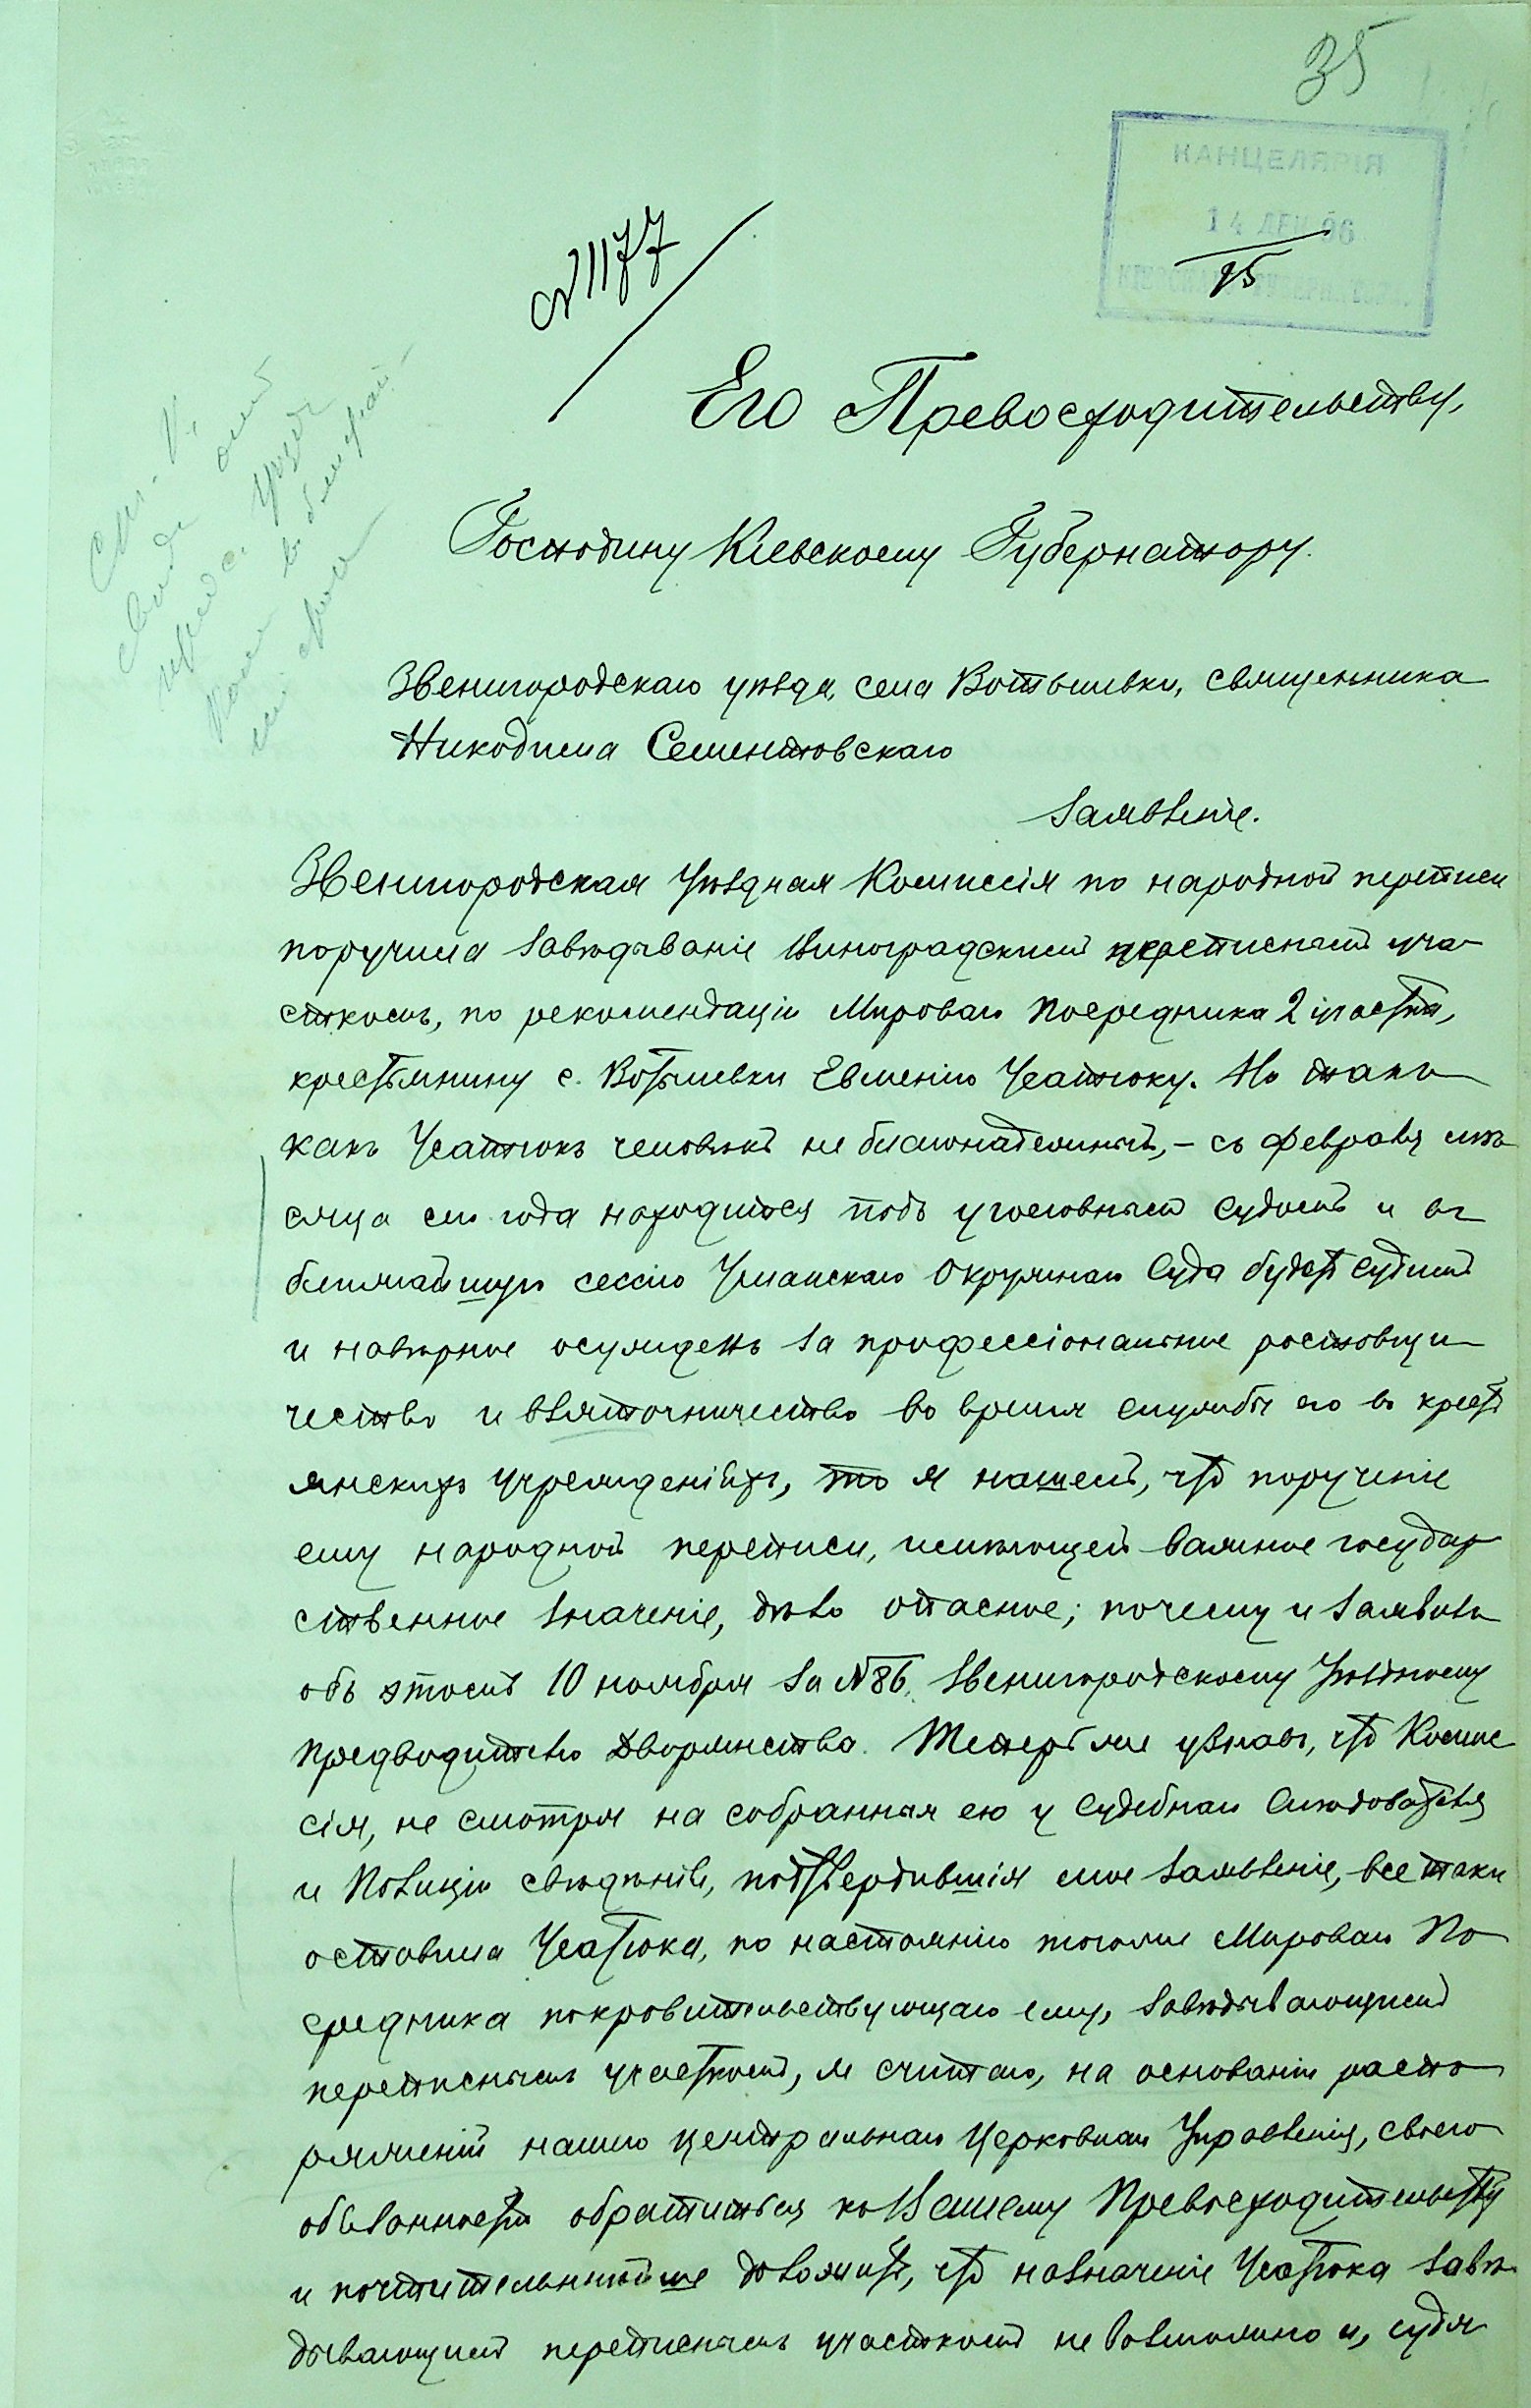 35
КАНЦЕЛЯРІЯ
14 ДЕК 96
95
№ 1177
Его Превосходительству,
Господину Кіевскому Губернатору.
Звенигородскаго уѣзда, села Вотылевки, священника
Никодима Сементовскаго
Заявленіе.
Звенигородская Уѣздная Комиссія по народной переписи
поручила завѣдываніе Виноградскимъ переписнымъ уча-
сткомъ, по рекомендаціи Мироваго Посредника 2 участка,
крестьянину с. Вотылевки Евменію Усатюку. Но такъ
какъ Усатюкъ человѣкъ не благонадежный, – съ февраля мѣ-
сяца сего года находится подъ уголовнымъ судомъ и въ
ближайшую сессію Уманскаго Окружнаго Суда будетъ судимъ
и навѣрное осужденъ за профессіональное ростовщи-
чество и взяточничество во время службы его въ крест-
янскихъ учрежденіяхъ, то я нашелъ, что порученіе
ему народной переписи, имѣющей важное государ-
ственное значеніе, дѣло опасное; почему и заявилъ
объ этомъ 10 ноября за № 86, Звенигородскому Уѣздному
Предводителю Дворянства. Теперь же узнавъ, что Комис-
сія, не смотря на собранныя ею у Судебнаго Слѣдователя
и Полиціи свѣдѣнія, подтвердившія мое заявленіе, все таки
оставила Усатюка, по настоянію тогоже Мироваго По-
средника покровительствующаго ему, завѣдывающимъ
переписнымъ участкомъ, я считаю, на основаніи распо-
ряженій нашего Центральнаго Церковнаго Управленія, своею
обязанностью обратиться къ Вашему Превосходительству
и почтительнѣйше доложить, что назначеніе Усатюка завѣ-
дывающимъ переписнымъ участкомъ не возможно и, судя